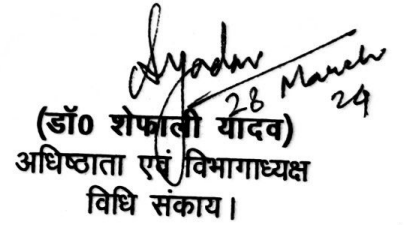 Syadav
28 March
24
(डॉ0 शेफाली यादव)
अधिष्ठाता एवं विभागाध्यक्ष
विधि संकाय।